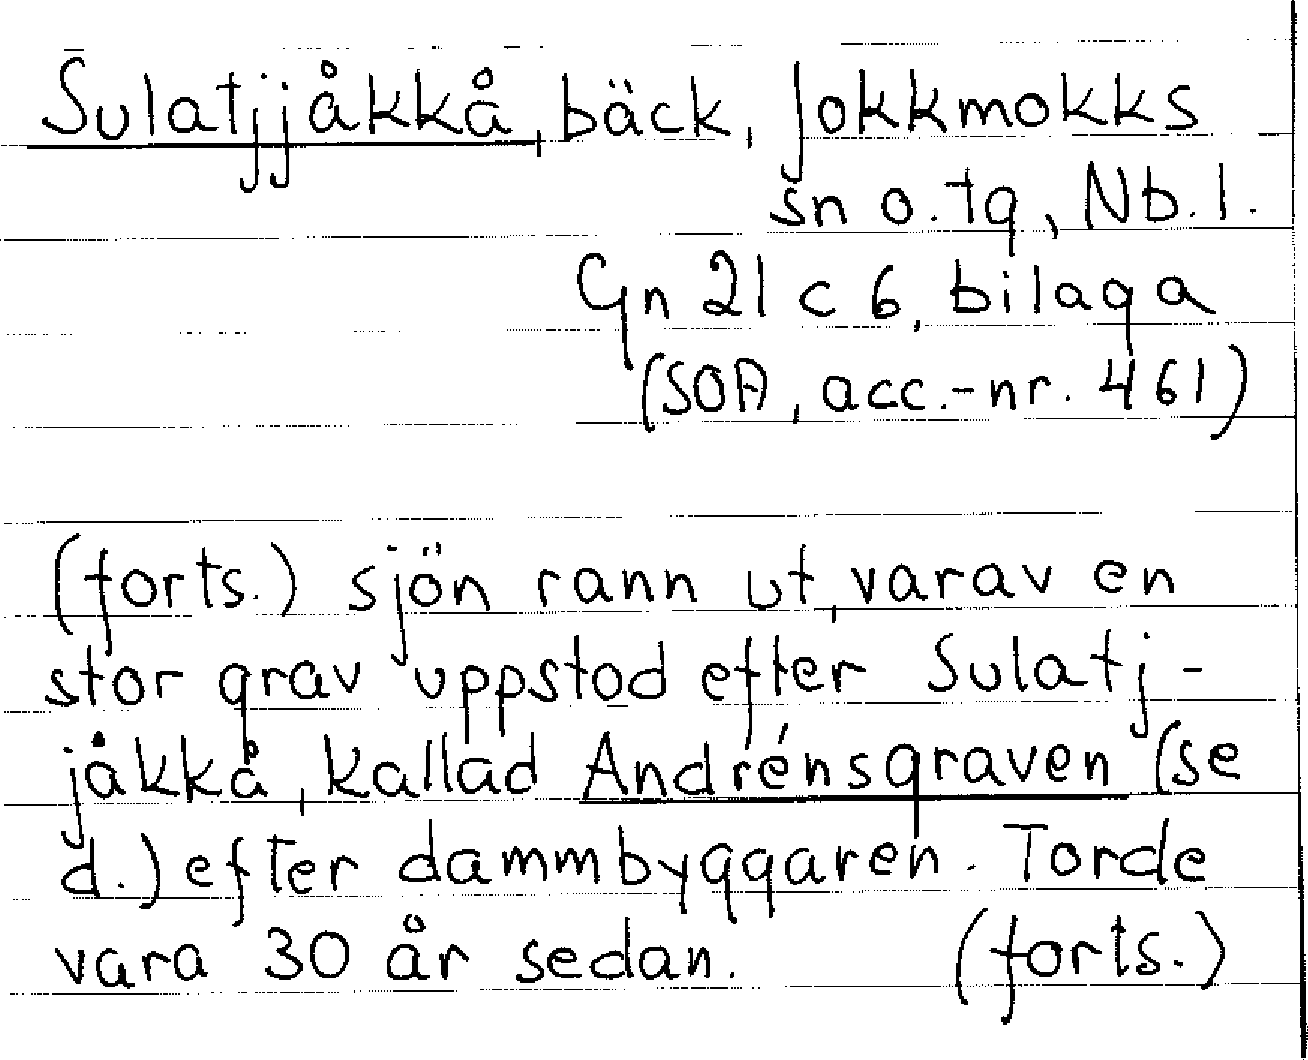 Sulatjjåkkå, bäck, Jokkmokks
sn o. tg, Nb. l.
Gn 21 c 6, bilaga
(SOA, acc.-nr. 461)
(forts.) sjön rann ut, varav en
stor grav uppstod efter Sulatj-
jåkkå, kallad Andrénsgraven (se
d.) efter dammbyggaren. Torde
vara 30 år sedan. (forts.)